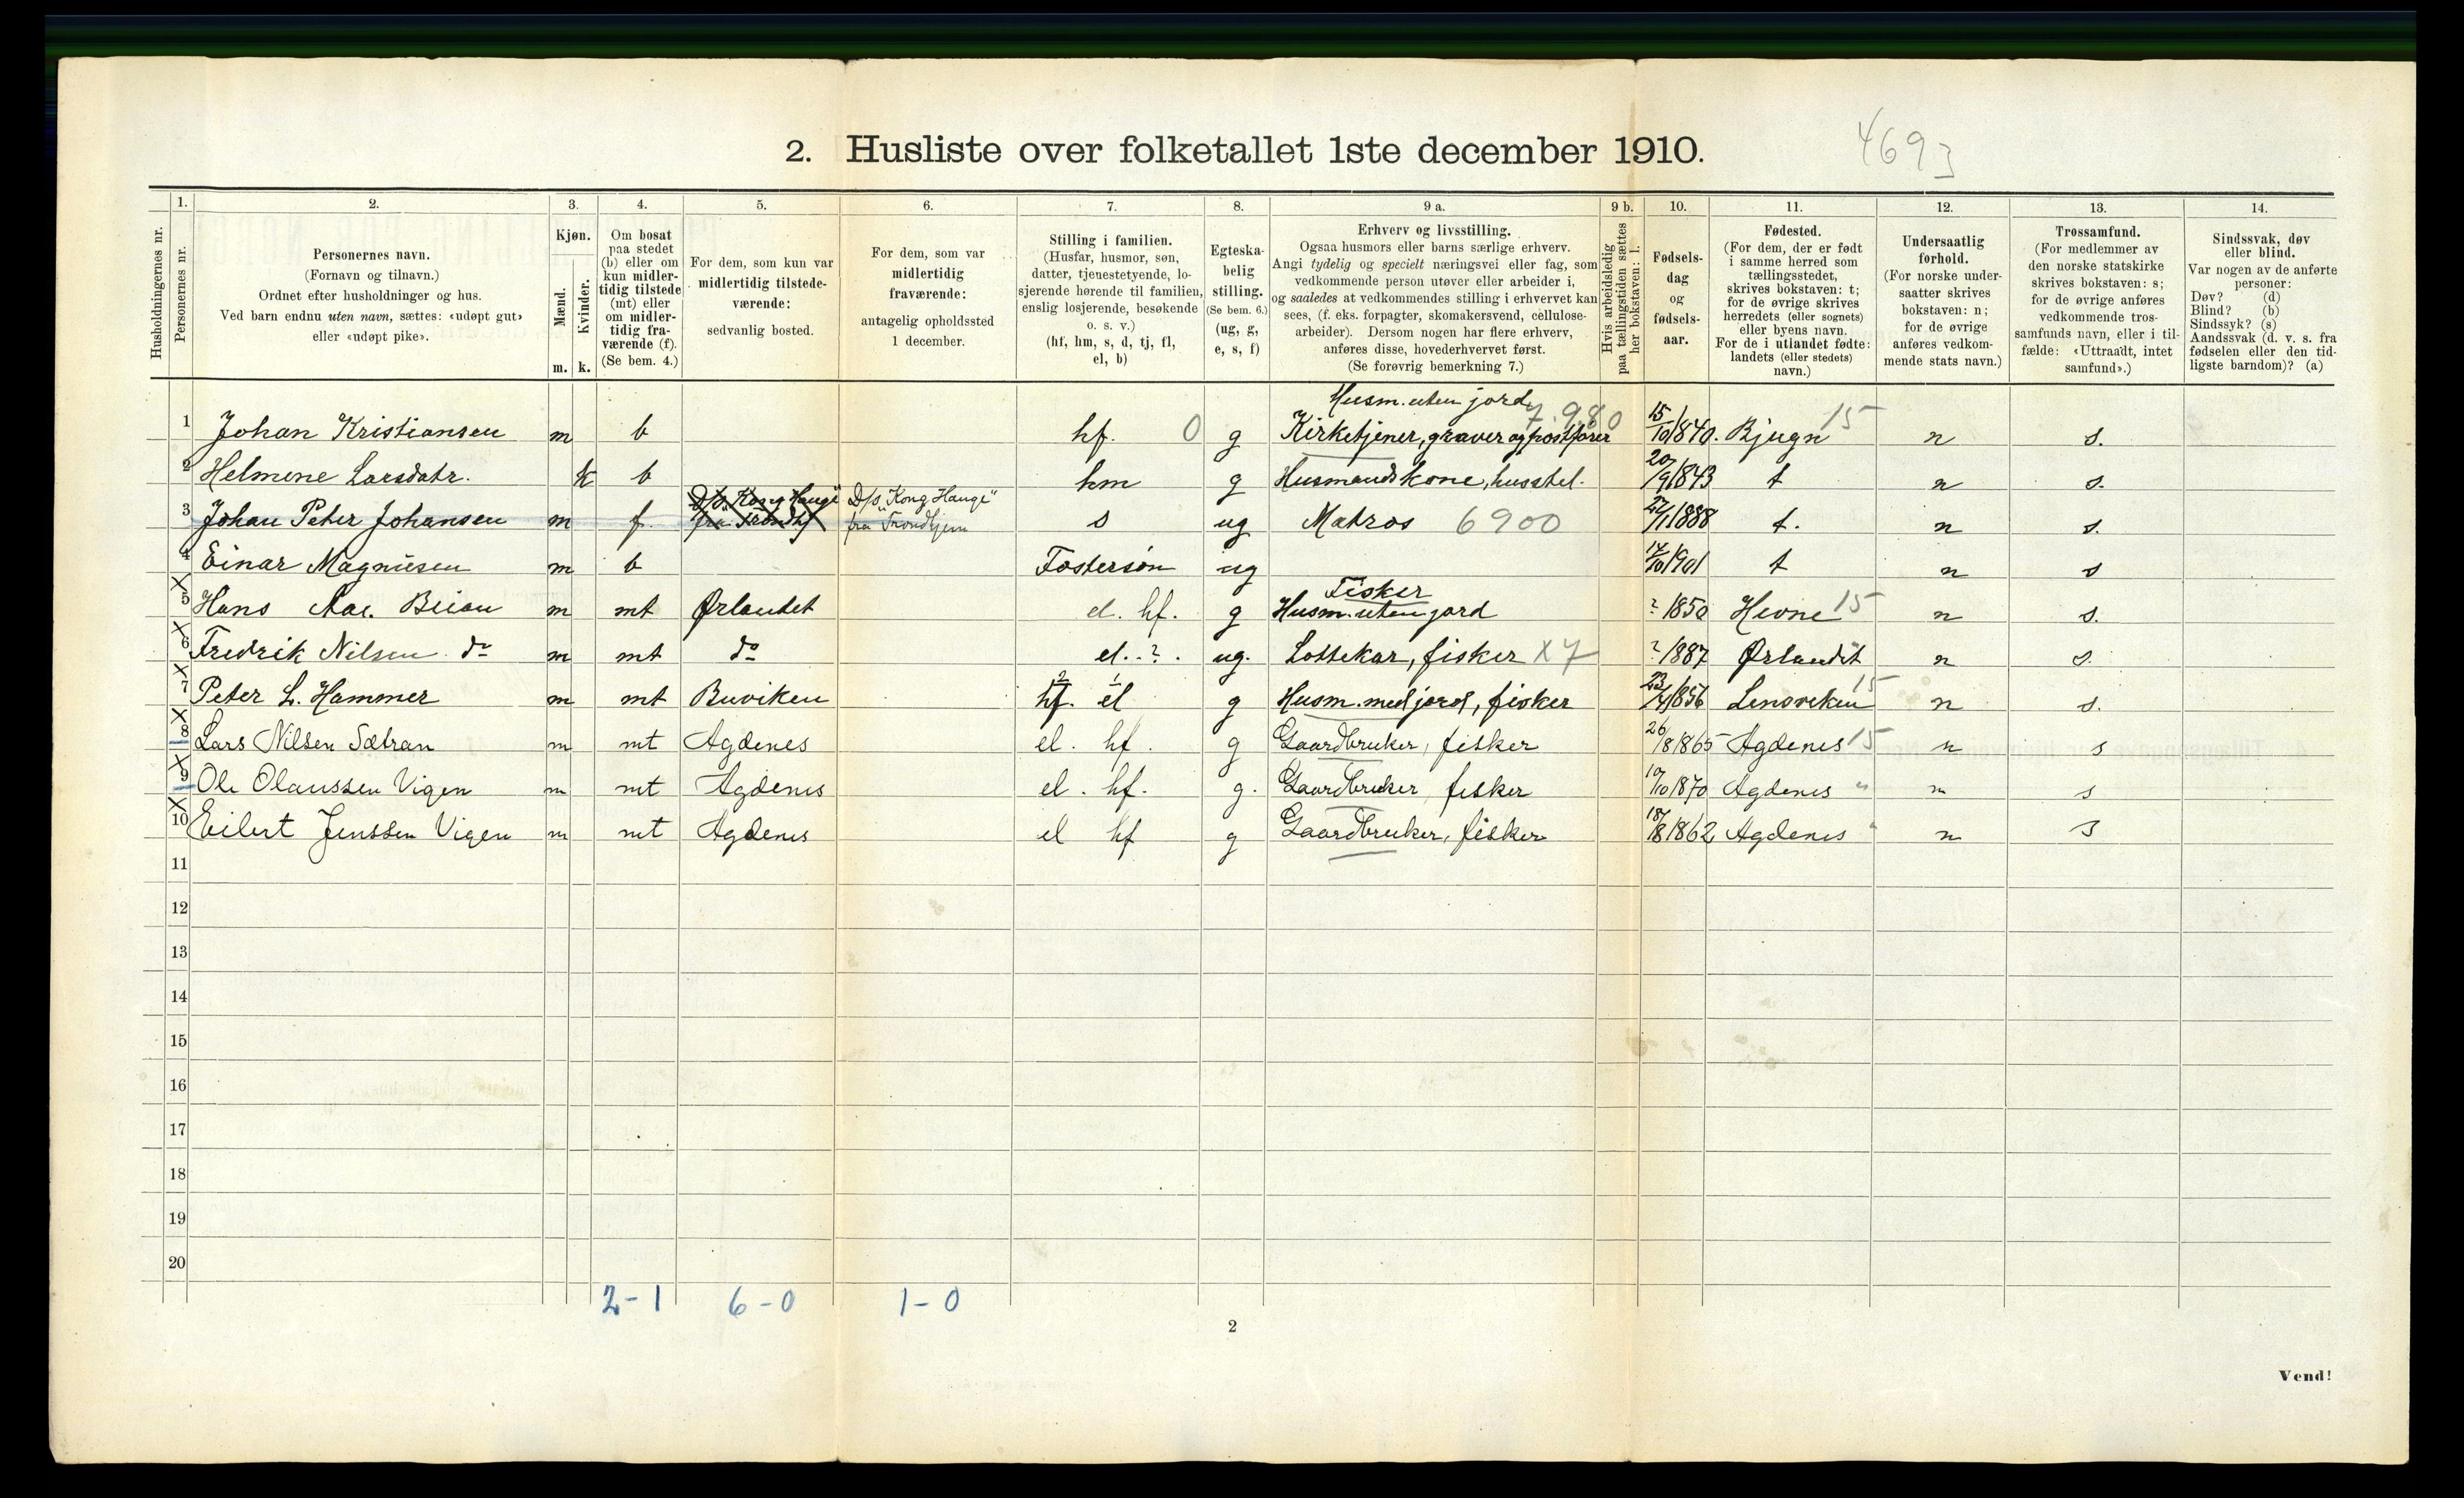 2. Husliste over folketallet 1ste december 1910.
4693
Husholdningernes nr.
1.
Personernes nr.
2.
Personernes navn.
(Fornavn og tilnavn.)
Ordnet efter husholdninger og hus.
Ved barn endnu uten navn, sættes: «udøpt gut»
eller «udøpt pike».
3.
Kjøn.
Mænd.
Kvinder.
m. k.
4.
Om bosat
paa stedet
(b) eller om
kun midler-
tidig tilstede
(mt) eller
om midler-
tidig fra-
værende (f).
(Se bem. 4.)
5.
For dem, som kun var
midlertidig tilstede-
værende:
sedvanlig bosted.
6.
For dem, som var
midlertidig
fraværende:
antagelig opholdssted
1 december.
7.
Stilling i familien.
(Husfar, husmor, søn,
datter, tjenestetyende, lo-
sjerende hørende til familien,
enslig losjerende, besøkende
o. s. v.)
(hf, hm, s, d, tj, fl,
el, b)
8.
Egteska-
belig
stilling.
(Se bem. 6.)
(ug, g,
e, s, f)
9 a.
Erhverv og livsstilling.
Ogsaa husmors eller barns særlige erhverv.
Angi tydelig og specielt næringsvei eller fag, som
vedkommende person utøver eller arbeider i,
og saaledes at vedkommendes stilling i erhvervet kan
sees, (f. eks. forpagter, skomakersvend, cellulose-
arbeider). Dersom nogen har flere erhverv,
anføres disse, hovederhvervet først.
(Se forøvrig bemerkning 7.)
9 b.
Hvis arbeidsledig
paa tællingstiden sættes
her bokstaven: l.
10.
Fødsels-
dag
og
fødsels-
aar.
11.
Fødested.
(For dem, der er født
i samme herred som
tællingsstedet,
skrives bokstaven: t;
for de øvrige skrives
herredets (eller sognets)
eller byens navn.
For de i utlandet fødte:
landets (eller stedets)
navn.)
12.
Undersaatlig
forhold.
(For norske under-
saatter skrives
bokstaven: n;
for de øvrige
anføres vedkom-
mende stats navn.)
13.
Trossamfund.
(For medlemmer av
den norske statskirke
skrives bokstaven: s;
for de øvrige anføres
vedkommende tros-
samfunds navn, eller i til-
fælde: «Uttraadt, intet
samfund».)
14.
Sindssvak, døv
eller blind.
Var nogen av de anførte
personer:
Døv? (d)
Blind? (b)
Sindssyk? (s)
Aandssvak (d. v. s. fra
fødselen eller den tid-
ligste barndom)? (a)
Husm. uten jord 7.980
1 Johan Kristiansen m b hf. 0 g Kirketjener, graver og postfører 15/10 1840. Bjugn 15 n s.
2 Helmine Larsdatr. k b hm g Husmandskone, husstel. 20/9 1843 t n s.
D/s "Kong Hauge" D/s "Kong Hauge"
3 Johan Peter Johansen m f. fra Trondhj fra Trondhjem s ug Matros 6900 /1 1888 t. n s.
4 Einar Magnusen m b Fostersøn ug 14/10 1901 t n s
Fisker
5 Hans Beian m mt Ørlandet el. hf. g Husm. uten jord ? 1850 Hevne 15 n s.
6 Fredrik Nilsen do m mt do el. ? ug. Lottekar, fisker X7 ? 1887 Ørlandet n s.
2 1
7 Peter L. Hammer m mt Buviken hf. el g Husm. med jord, fisker 23/4 1856 Lensviken 15 n s.
8 Lars Nilsen Sætran m mt Agdenes el. hf. g Gaardbruker, fisker 26/8 1865 Agdenes 15 n s
9 Ole Olaussen Vigen m mt Agdenes el. hf. g. Gaardbruker fisker 10/10 1870 Agdenes " n s
10 Eilert Jenssen Vigen m mt Agdenes el hf g Gaardbruker, fisker 18/8 1862 Agdenes " n s
11
12
13
14
15
16
17
18
19
20
2-1 6-0 1-0
2
Vend!